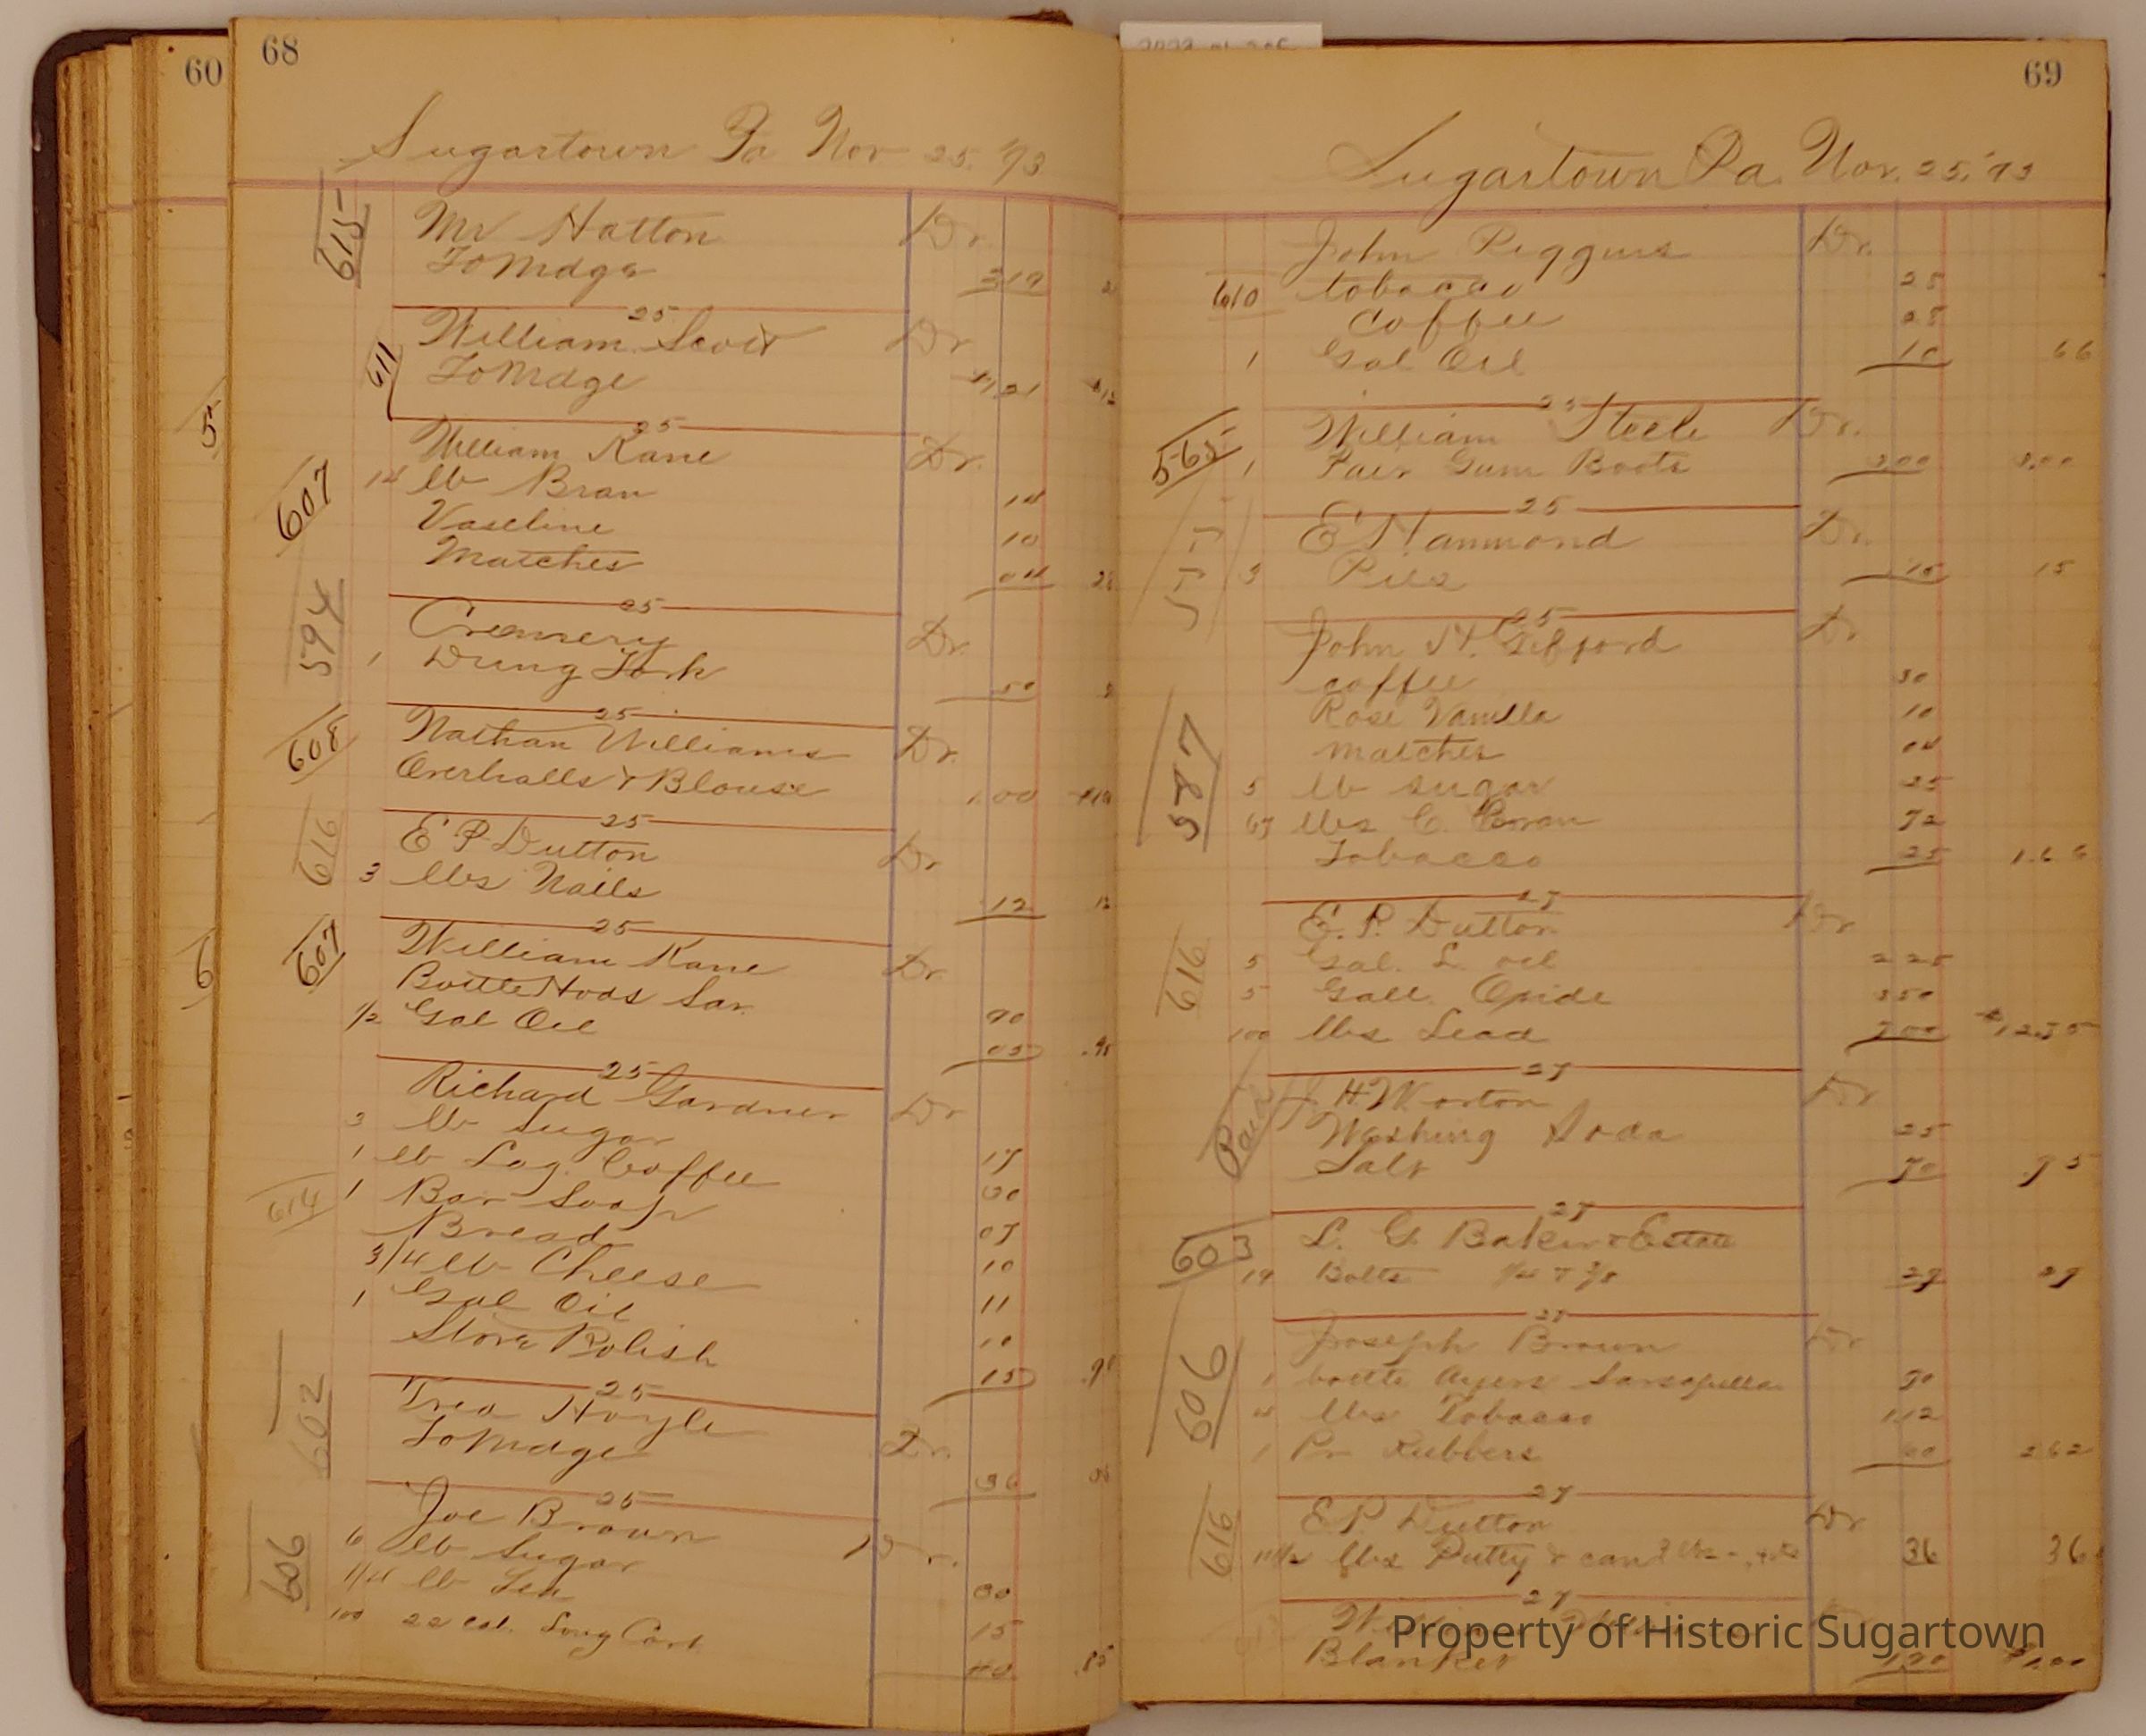 60
5
6
68
Sugartown Pa Nov 25. '93
615
Mr Hatton Dr.
To Mdge 319
25
611
William Scott Dr
To Mdge 1,21
25
607
William Kane Dr.
14 lb Bran 14
Vaseline 10
Matches 04 28
25
594
Creamery Dr.
1 Dung Fork 50
25
608
Nathan Williams Dr.
Overhalls & Blouse 1.00
25
616
E P Dutton Dr
3 lbs Nails 12 12
25
607
William Kane Dr.
Bottle Hoods Sar. 90
1/2 Gal Oil 05 .95
25
Richard Gardner Dr
3 lb Sugar 17
1 lb Lag. Coffee
614
1 Bar Soap 05
Bread 10
3/4 lb Cheese 11
1 Gal Oil 10
Stove Polish 15
25
602
Hoyle Dr.
To Mdge 36
25
606
Joe Brown Dr.
6 lb Sugar 30
1/4 lb Tea 15
100 22 Cal. Long Cart. 40 .85
69
Sugartown Pa. Nov. 25, '93
John Piggins Dr.
610 tobacco 25
Coffee 25
1 Gal Oil 10
25
565
William Steele Dr.
1 Pair Gum Boots 3.00
25
555
E Hammond Dr.
3 Pies 15 15
25
587
John H. Gifford Dr
coffee 30
Rose Vanilla 10
matches 04
5 lb sugar 25
lbs C. Bran 72
Tobacco 25 1.66
27
616
E. P. Dutton Dr
5 Gal. L. oil 2 25
5 Gall. Oxide 3 50
100 lbs Lead 7 00 $12.75
27
Paid
J. H Worton Dr
Washing Soda 25
Salt 70 .95
27
603
L. G. Baker Estate
14 Bolts 27 27
27
606
Joseph Brown Dr
1 bottle Ayers Sarsapella 90
4 lbs Tobacco 1 12
1 Pr Rubbers 60 2 62
27
616
E P. Dutton Dr
lbs Putty & can 36 36
27
Blanket
Property of Historic Sugartown